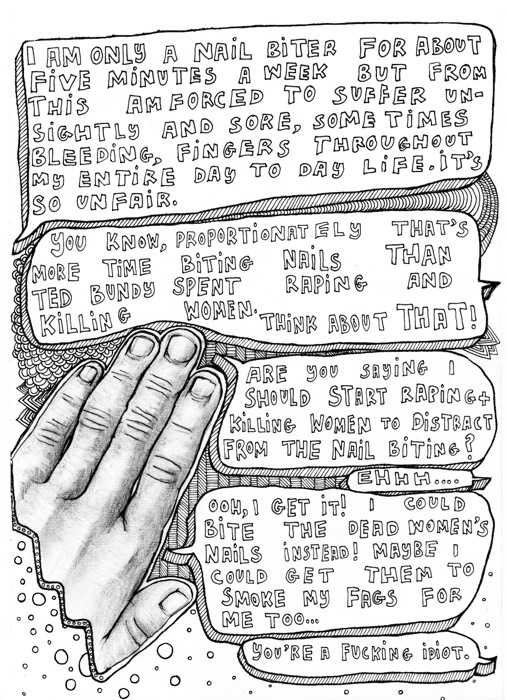 I AM ONLY A NAIL BITER FOR ABOUT
FIVE MINUTES A WEEK BUT FROM
THIS AM FORCED TO SUFFER UN-
SIGHTLY AND SORE, SOMETIMES
BLEEDING, FINGERS THROUGHOUT
MY ENTIRE DAY TO DAY LIFE. IT'S
SO UNFAIR.
YOU KNOW, PROPORTIONATELY THAT'S
MORE TIME BITING NAILS THAN
TED BUNDY SPENT RAPING AND
KILLING WOMEN. THINK ABOUT THAT!
ARE YOU SAYING I
SHOULD START RAPING+
KILLING WOMEN TO DISTRACT
FROM THE NAIL BITING?
EHHH....
OOH, I GET IT! I COULD
BITE THE DEAD WOMEN'S
NAILS INSTEAD! MAYBE I
COULD GET THEM TO
SMOKE MY FAGS FOR
ME TOO...
YOU'RE A FUCKING IDIOT.